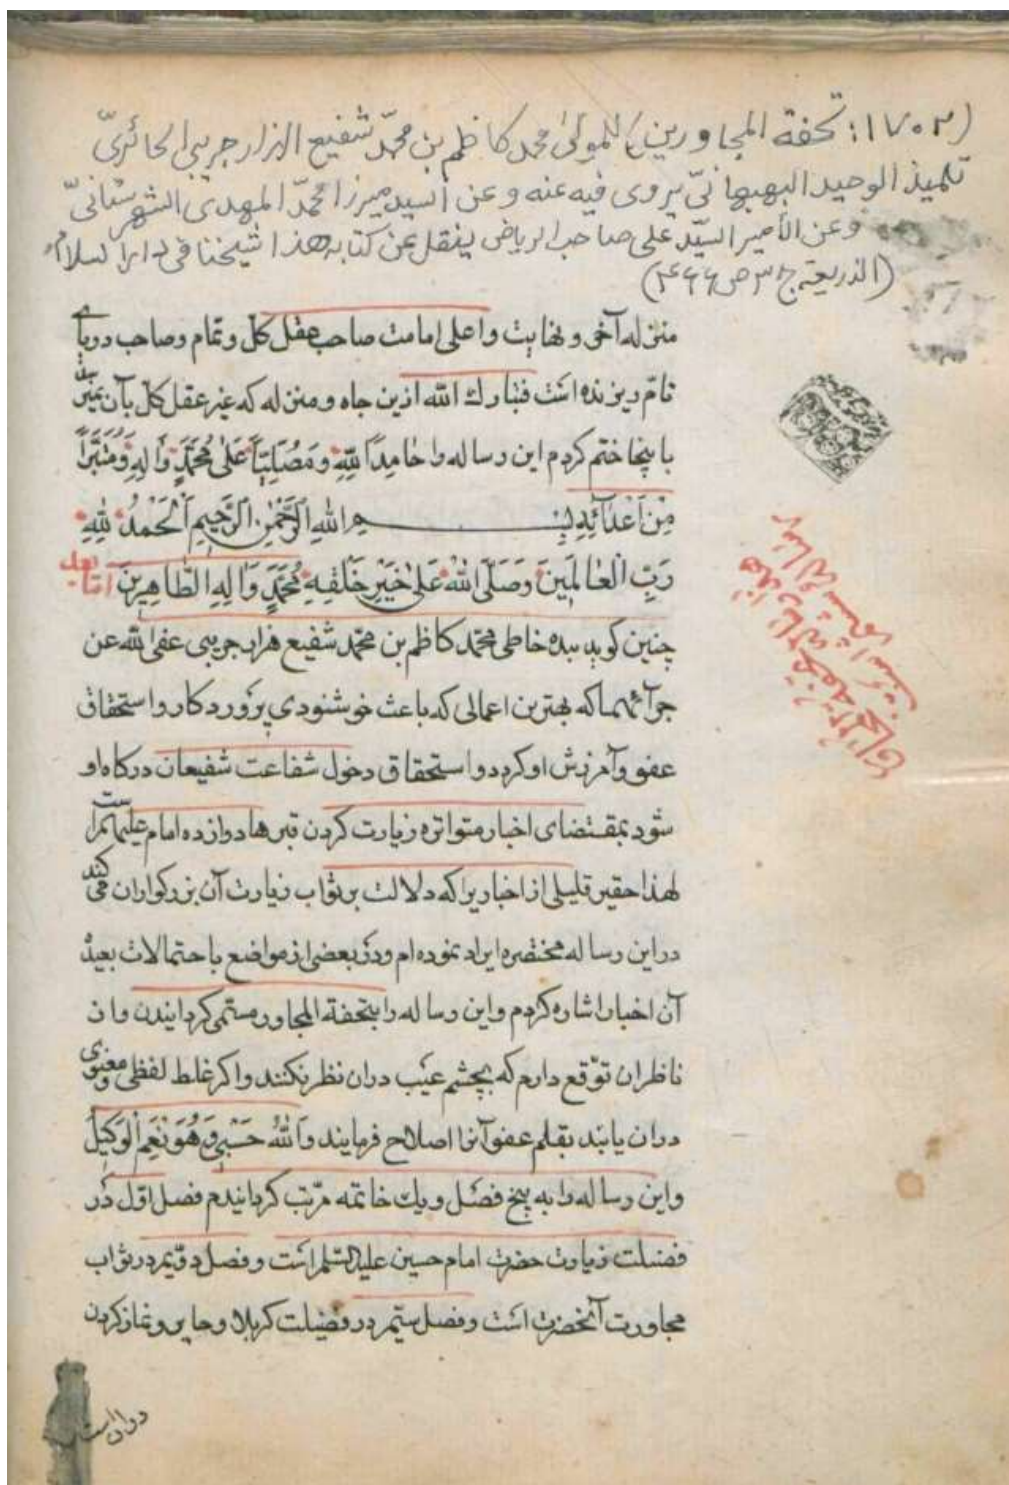 (١٧٠٢: تحفة المجاورين) للمولى محمد كاظم بن محمّد شفيع الهزارجريبي الحائريّ
تلميذ الوحيد البهبهانيّ يروى فيه عنه و عن السيد ميرزا محمّد المهدي الشهرستانيّ
و عن الأمير السيّد على صاحب الرياض ينقل عن كتابه هذا شيخنا في دار السلام
(الذريعة ج٣ ص٤٦٦)
منزله آخر و نهايت و اعلى امامت صاحب عقل كل و تمام و صاحب دوپاى
تامّ ريزنده است فتبارك الله ازين جاه و منزله كه غير عقل كل بآن نميرسد
باينجا ختم كردم اين رساله را حَامِدًا لِلّهِ وَ مُصَلِّيًا عَلى مُحَمَّدٍ وَ الِهِ وَ مُتَبَرِّأً
مِنْ اَعْدَآئِهِ بِسْمِ اللهِ الرَّحْمٰنِ الرَّحِيمِ اَلْحَمْدُ لِلّهِ
رَبِّ الْعٰالَمِينَ وَ صَلَّى اللهُ عَلىٰ خَيْرِ خَلْقِهِ مُحَمَّدٍ وَ الِهِ الطَّاهِرِينَ امّا بعد
چنين كويد بنده خاطى محمّد كاظم بن محمّد شفيع هزارجريبى عفى الله عن
جرآئمهما كه بهترين اعمالى كه باعث خوشنودي پروردكار و استحقاق
عفو و آمرزش او كردد و استحقاق دخول شفاعت شفيعان دركاه او
شود بمقتضاى اخبار متواتره زيارت كردن قبرها دوازده امام عليهم
لهذا حقير قليلى از اخباريرا كه دلالت بر ثواب زيارت آن بزركواران مى كند
در اين رساله مختصره ايراد نموده ام و در بعضى از مواضع باحتمالات بعيده
آن اخبار اشاره كردم و اين رساله را بتحفة المجاور مسمّى كردانيدن و از
ناظران توقّع دارم كه بچشم عيب دران نظر نكنند و اكر غلط لفظى و معنوى
دران يابند بقلم عفو آنرا اصلاح فرمايند وَ اللهُ حَسْبِي وَ هُوَ نِعْمَ الْوَكِيلُ
و اين رساله را به پنج فصل و يك خاتمه مرتّب كردانيدم فصل اوّل در
فضيلت زيارت حضرت امام حسين عليه السّلم است و فصل دويّم در ثواب
مجاورت آنحضرت است و فصل سيّم در فضيلت كربلا و حاير و نماز كردن